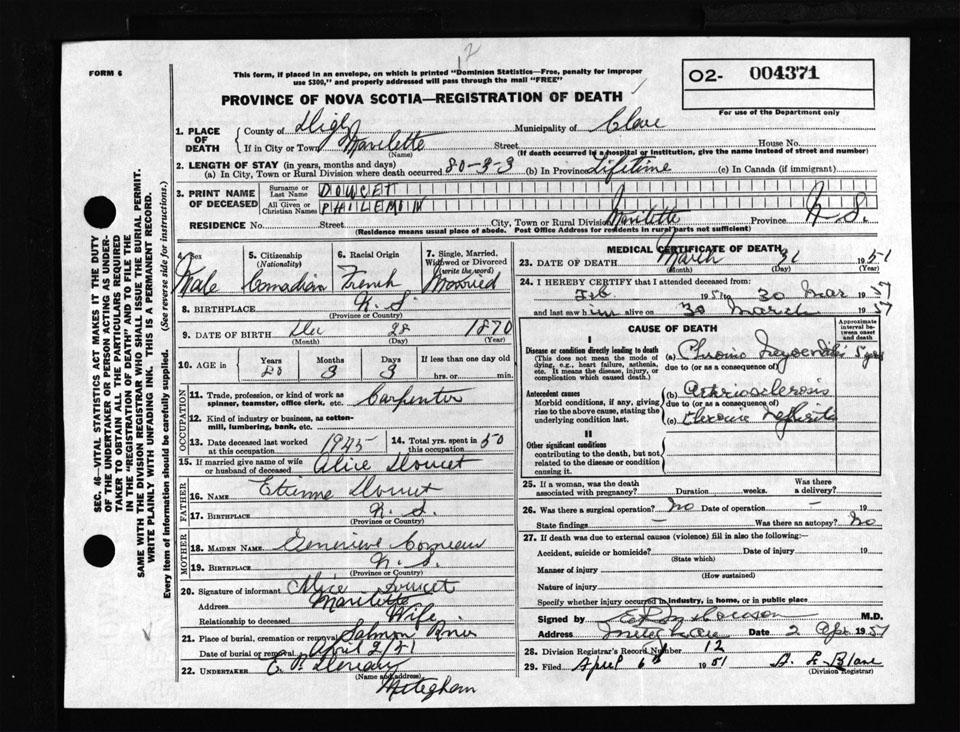 12
FORM 6
This form, if placed in an envelope, on which is printed "Dominion Statistics—Free, penalty for improper
use $300," and properly addressed will pass through the mail "FREE"
O2- 004371
For use of the Department only
PROVINCE OF NOVA SCOTIA—REGISTRATION OF DEATH
1. PLACE OF DEATH { County of Digby Municipality of Clare
If in City or Town (Name) Street House No.
(If death occurred in a hospital or institution, give the name instead of street and number)
2. LENGTH OF STAY (in years, months and days)
(a) In City, Town or Rural Division where death occurred 80-3-3 (b) In Province Lifetime (c) In Canada (if immigrant)
3. PRINT NAME OF DECEASED { Surname or Last Name DOUCET
All Given or Christian Names PHILEMON
RESIDENCE No. Street City, Town or Rural Division Province N.S.
(Residence means usual place of abode. Post Office Address for residents in rural parts not sufficient)
4. Sex Male
5. Citizenship (Nationality) Canadian
6. Racial Origin French
7. Single, Married, Widowed or Divorced (write the word) Married
8. BIRTHPLACE N.S.
(Province or Country)
9. DATE OF BIRTH Dec 28 1870
(Month) (Day) (Year)
10. AGE in { Years 80 Months 3 Days 3 If less than one day old
hrs. or min.
OCCUPATION
11. Trade, profession, or kind of work as spinner, teamster, office clerk, etc. Carpenter
12. Kind of industry or business, as cotton-mill, lumbering, bank, etc.
13. Date deceased last worked at this occupation 1945 14. Total yrs. spent in this occupation 50
15. If married give name of wife or husband of deceased Alice Doucet
FATHER
16. NAME Etienne Doucet
17. BIRTHPLACE N.S.
(Province or Country)
MOTHER
18. MAIDEN NAME Genevieve Comeau
19. BIRTHPLACE N.S.
(Province or Country)
20. Signature of informant Alice Doucet
Address
Relationship to deceased Wife
21. Place of burial, cremation or removal Salmon River
Date of burial or removal April 2/51
22. UNDERTAKER
(Name and address)
Meteghan
MEDICAL CERTIFICATE OF DEATH
23. DATE OF DEATH March 31 1951
(Month) (Day) (Year)
24. I HEREBY CERTIFY that I attended deceased from:
Feb 1951 to 30 Mar 1951
and last saw him alive on 30 March 1951
CAUSE OF DEATH
Approximate interval between onset and death
I
Disease or condition directly leading to death
This does not mean the mode of dying, e.g., heart failure, asthenia, etc. It means the disease, injury, or complication which caused death.
(a) Chronic Myocarditis 5 years
due to (or as a consequence of)
Antecedent causes
Morbid conditions, if any, giving rise to the above cause, stating the underlying condition last.
(b) Arteriosclerosis
due to (or as a consequence of)
(c) Chronic Nephritis
II
Other significant conditions
contributing to the death, but not related to the disease or condition causing it.
25. If a woman, was the death associated with pregnancy? Duration weeks. Was there a delivery?
26. Was there a surgical operation? No Date of operation – 19
State findings – Was there an autopsy? No
27. If death was due to external causes (violence) fill in also the following:—
Accident, suicide or homicide? Date of injury 19
(State which)
Manner of injury
(How sustained)
Nature of injury
Specify whether injury occurred in industry, in home, or in public place
Signed by M.D.
Address Date 2 Apr 1951
28. Division Registrar's Record Number 12
29. Filed April 6th 1951
(Division Registrar)
SEC. 46—VITAL STATISTICS ACT MAKES IT THE DUTY
OF THE UNDERTAKER OR PERSON ACTING AS UNDER-
TAKER TO OBTAIN ALL THE PARTICULARS REQUIRED
IN THE "REGISTRATION OF DEATH" AND TO FILE THE
SAME WITH THE DIVISION REGISTRAR WHO SHALL ISSUE THE BURIAL PERMIT.
WRITE PLAINLY WITH UNFADING INK. THIS IS A PERMANENT RECORD.
Every item of information should be carefully supplied. (See reverse side for instructions.)